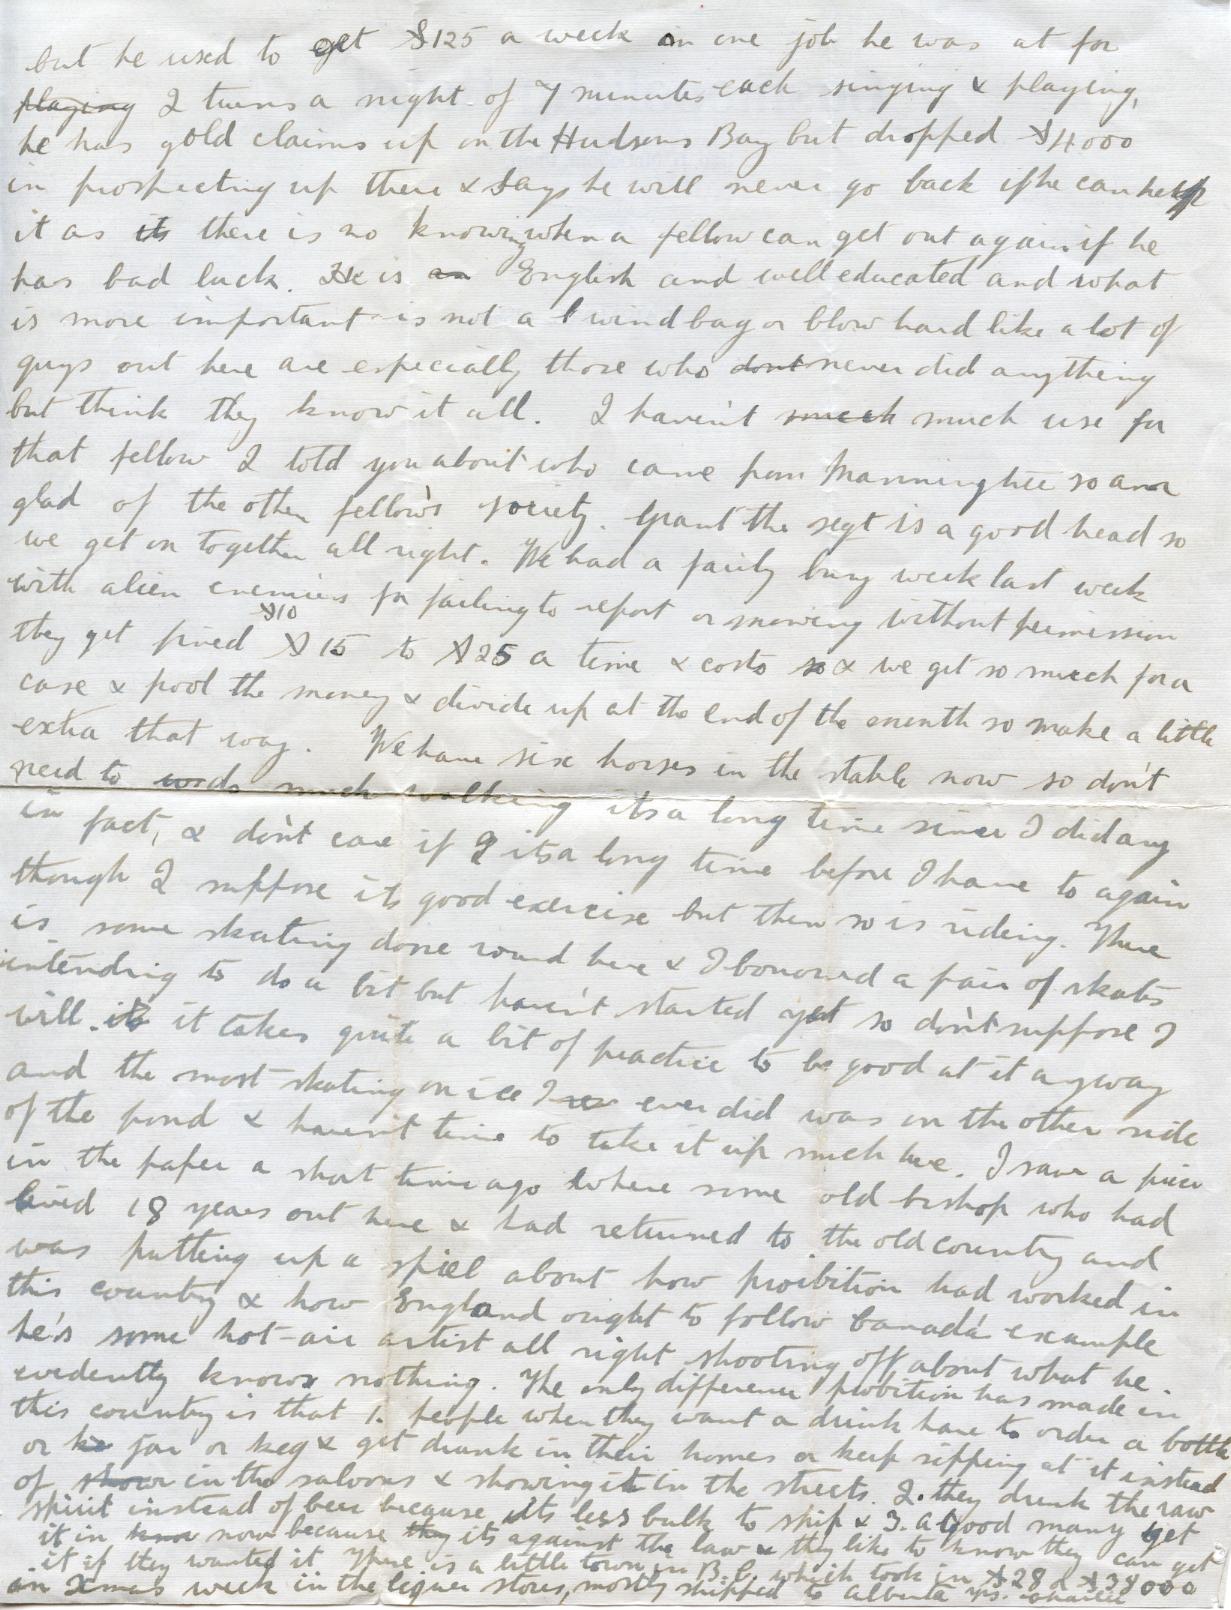 but he used to get $125 a week on one job he was at for
playing 2 turns a night of 7 minutes each singing & playing,
he has gold claims up on the Hudsons Bay but dropped $4000
in prospecting up there & says he will never go back if he can help
it as its there is no knowing when a fellow can get out again if he
has bad luck. He is an English and well educated and what
is more important is not a wind bag or blow hard like a lot of
guys out here are especially those who dont never did anything
but think they know it all. I haven't much much use for
that fellow I told you about who came from Manningtree so am
glad of the other fellow's society. Grant the sergt is a good head so
we get on together all right. We had a fairly busy week last week
with alien enemies for failing to report or moving without permission
they get fined $10 $15 to $25 a time & costs so & we get so much for a
case & pool the money & divide up at the end of the month so make a little
extra that way. We have six horses in the stable now so don't
need to do much walking its a long time since I did any
in fact, & don't care if its a long time before I have to again
though I suppose its good exercise but then so is riding. There
is some skating done round here & I borrowed a pair of skates
intending to do a bit but haven't started yet so don't suppose I
will. its it takes quite a bit of practice to be good at it anyway
and the most skating on ice I ever did was on the other side
of the pond & haven't time to take it up much here. I saw a piece
in the paper a short time ago where some old bishop who had
lived 18 years out here & had returned to the old country and
was putting up a spiel about how proibition had worked in
this country & how England ought to follow Canada's example
he's some hot-air artist all right shooting off about what he
evidently knows nothing. The only difference probition has made in
this country is that 1. people when they want a drink have to order a bottle
or jar or keg & get drunk in their homes or keep sipping at it instead
of in the saloons & showing it in the streets. 2. they drink the raw
spirit instead of beer because its less bulk to ship & 3. a good many get
it in now because they its against the law & they like to know they can get
it if they wanted it. There is a little town in B.C. which took in $28 or $38000
in Xmas week in the liquer stores, mostly shipped to alberta yrs. Charlie